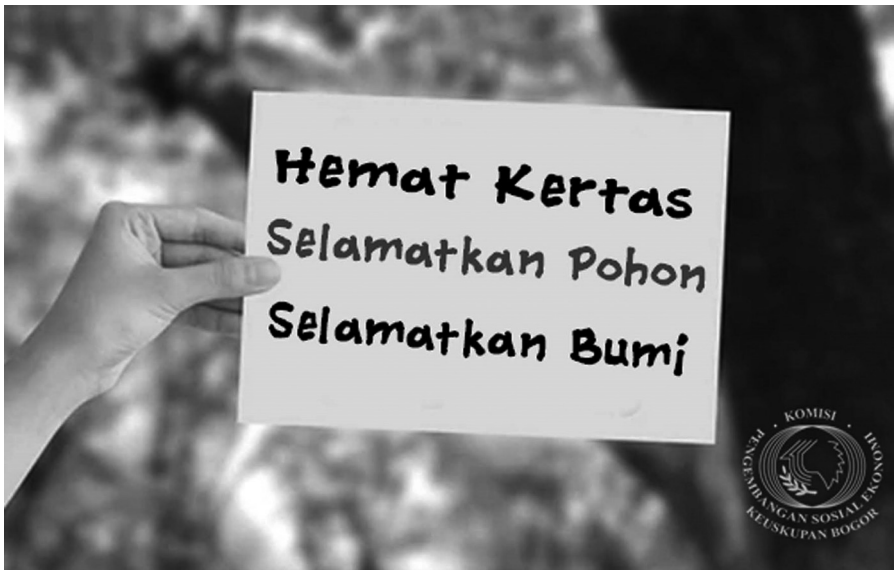 Hemat Kertas
Selamatkan Pohon
Selamatkan Bumi
KOMISI
PENGEMBANGAN SOSIAL EKONOMI
KEUSKUPAN BOGOR